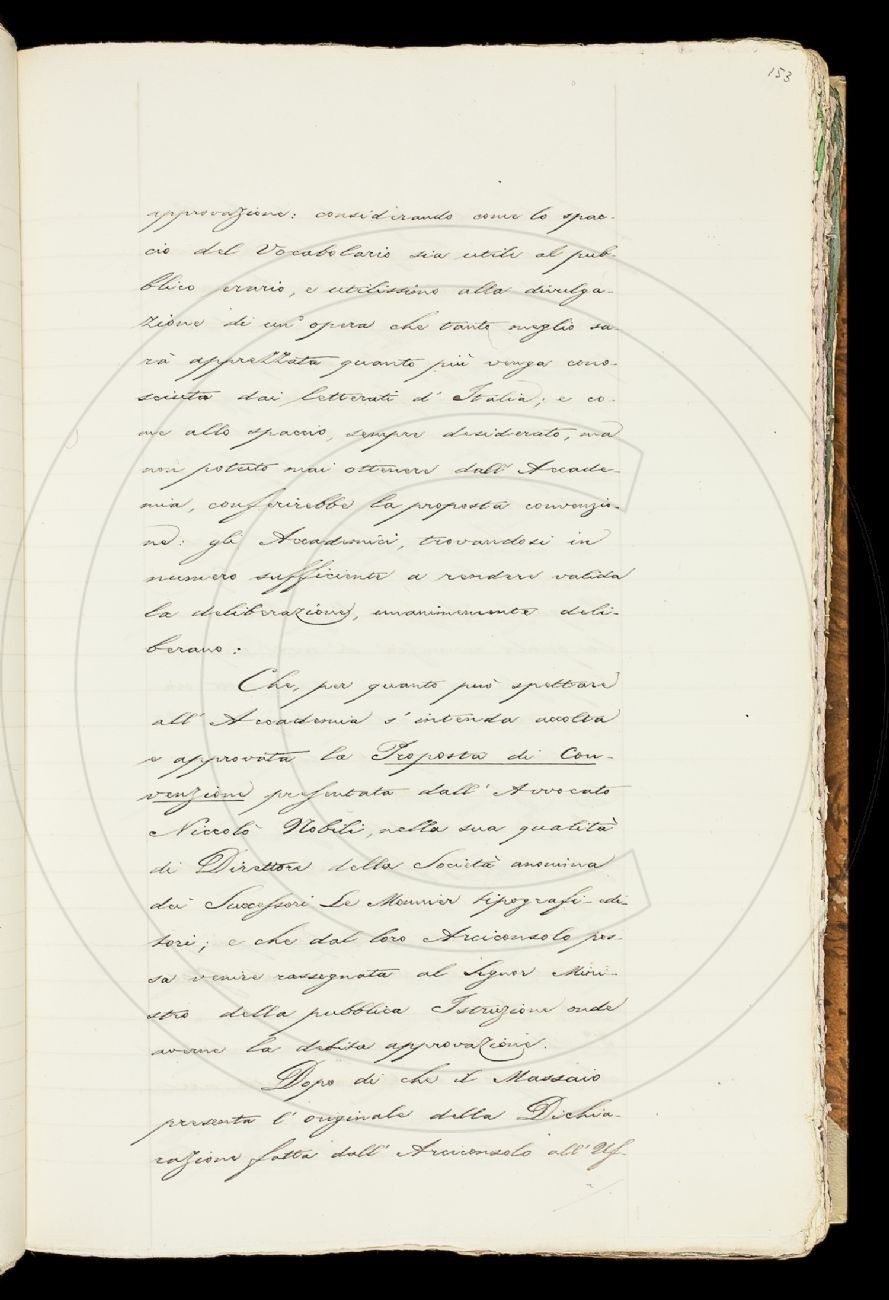 153
approvazione: considerando come lo spac-
cio del Vocabolario sia utile al pub-
blico erario, e utilissimo alla divulga-
zione di un' opera che tanto meglio sa-
rà apprezzata quanto più venga cono-
sciuta dai letterati d' Italia; e co-
me allo spaccio, sempre desiderato, ma
non potuto mai ottenere dall' Accade-
mia, conferirebbe la proposta convenzio-
ne: gli Accademici, trovandosi in
numero sufficiente a rendere valida
la deliberazione, unanimemente deli-
berano:
Che, per quanto può spettare
all' Accademia s' intenda accolta
e approvata la Proposta di Con-
venzione presentata dall' Avvocato
Niccolò Nobili, nella sua qualità
di Direttore della Società anonima
dei Successori Le Monnier tipografi-edi-
tori; e che dal loro Arciconsolo pos-
sa venire rassegnata al Signor Mini-
stro della pubblica Istruzione onde
averne la debita approvazione.
Dopo di che il Massaio
presenta l' originale della Dichia-
razione fatta dall' Arciconsolo all' Uf-